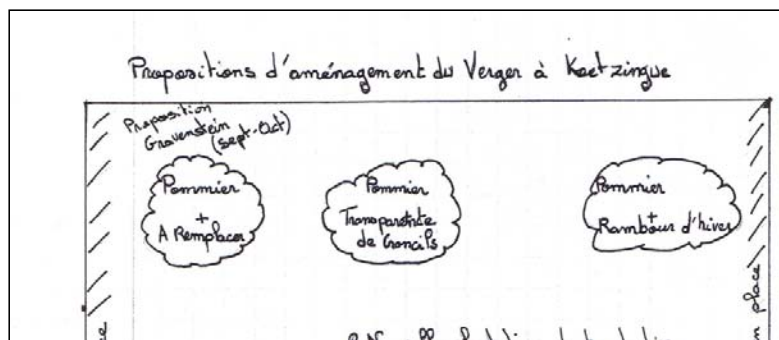 Propositions d'aménagement du Verger à Koetzingue
Proposition
Gravenstein
(Sept-Oct)
Pommier
+
A Remplacer
Pommier
Transparente
de Croncels
Pommier
+
Rambour d'hiver
place